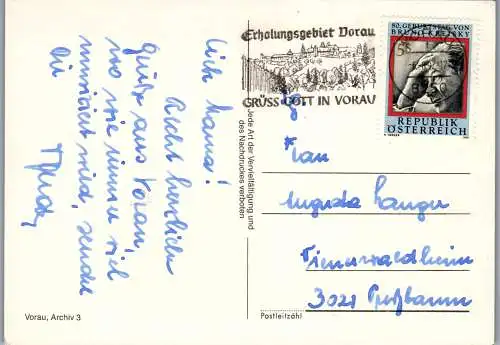 Erholungsgebiet Vorau
GRÜSS GOTT IN VORAU
80. GEBURTSTAG VON
BRUNO KREISKY
5S
REPUBLIK
ÖSTERREICH
Lieb Mama!
Recht herzliche
Grüße aus Vorau,
wo wie immer viel
musiziert wird, sendet
Dir
Jede Art der Vervielfältigung und
des Nachdruckes verboten
Frau
Augusta Langer
Wienerwaldheim
3021 Preßbaum
Postleitzahl
Vorau, Archiv 3